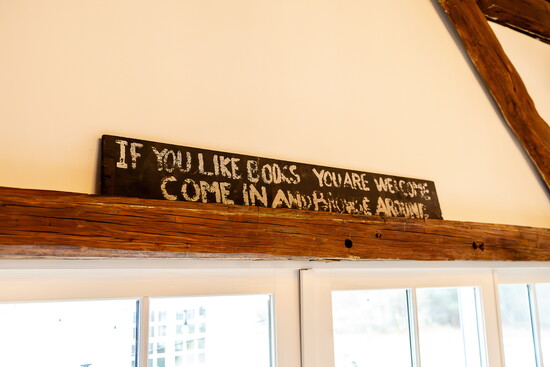 IF YOU LIKE BOOKS YOU ARE WELCOME
COME IN AND BROWSE AROUND